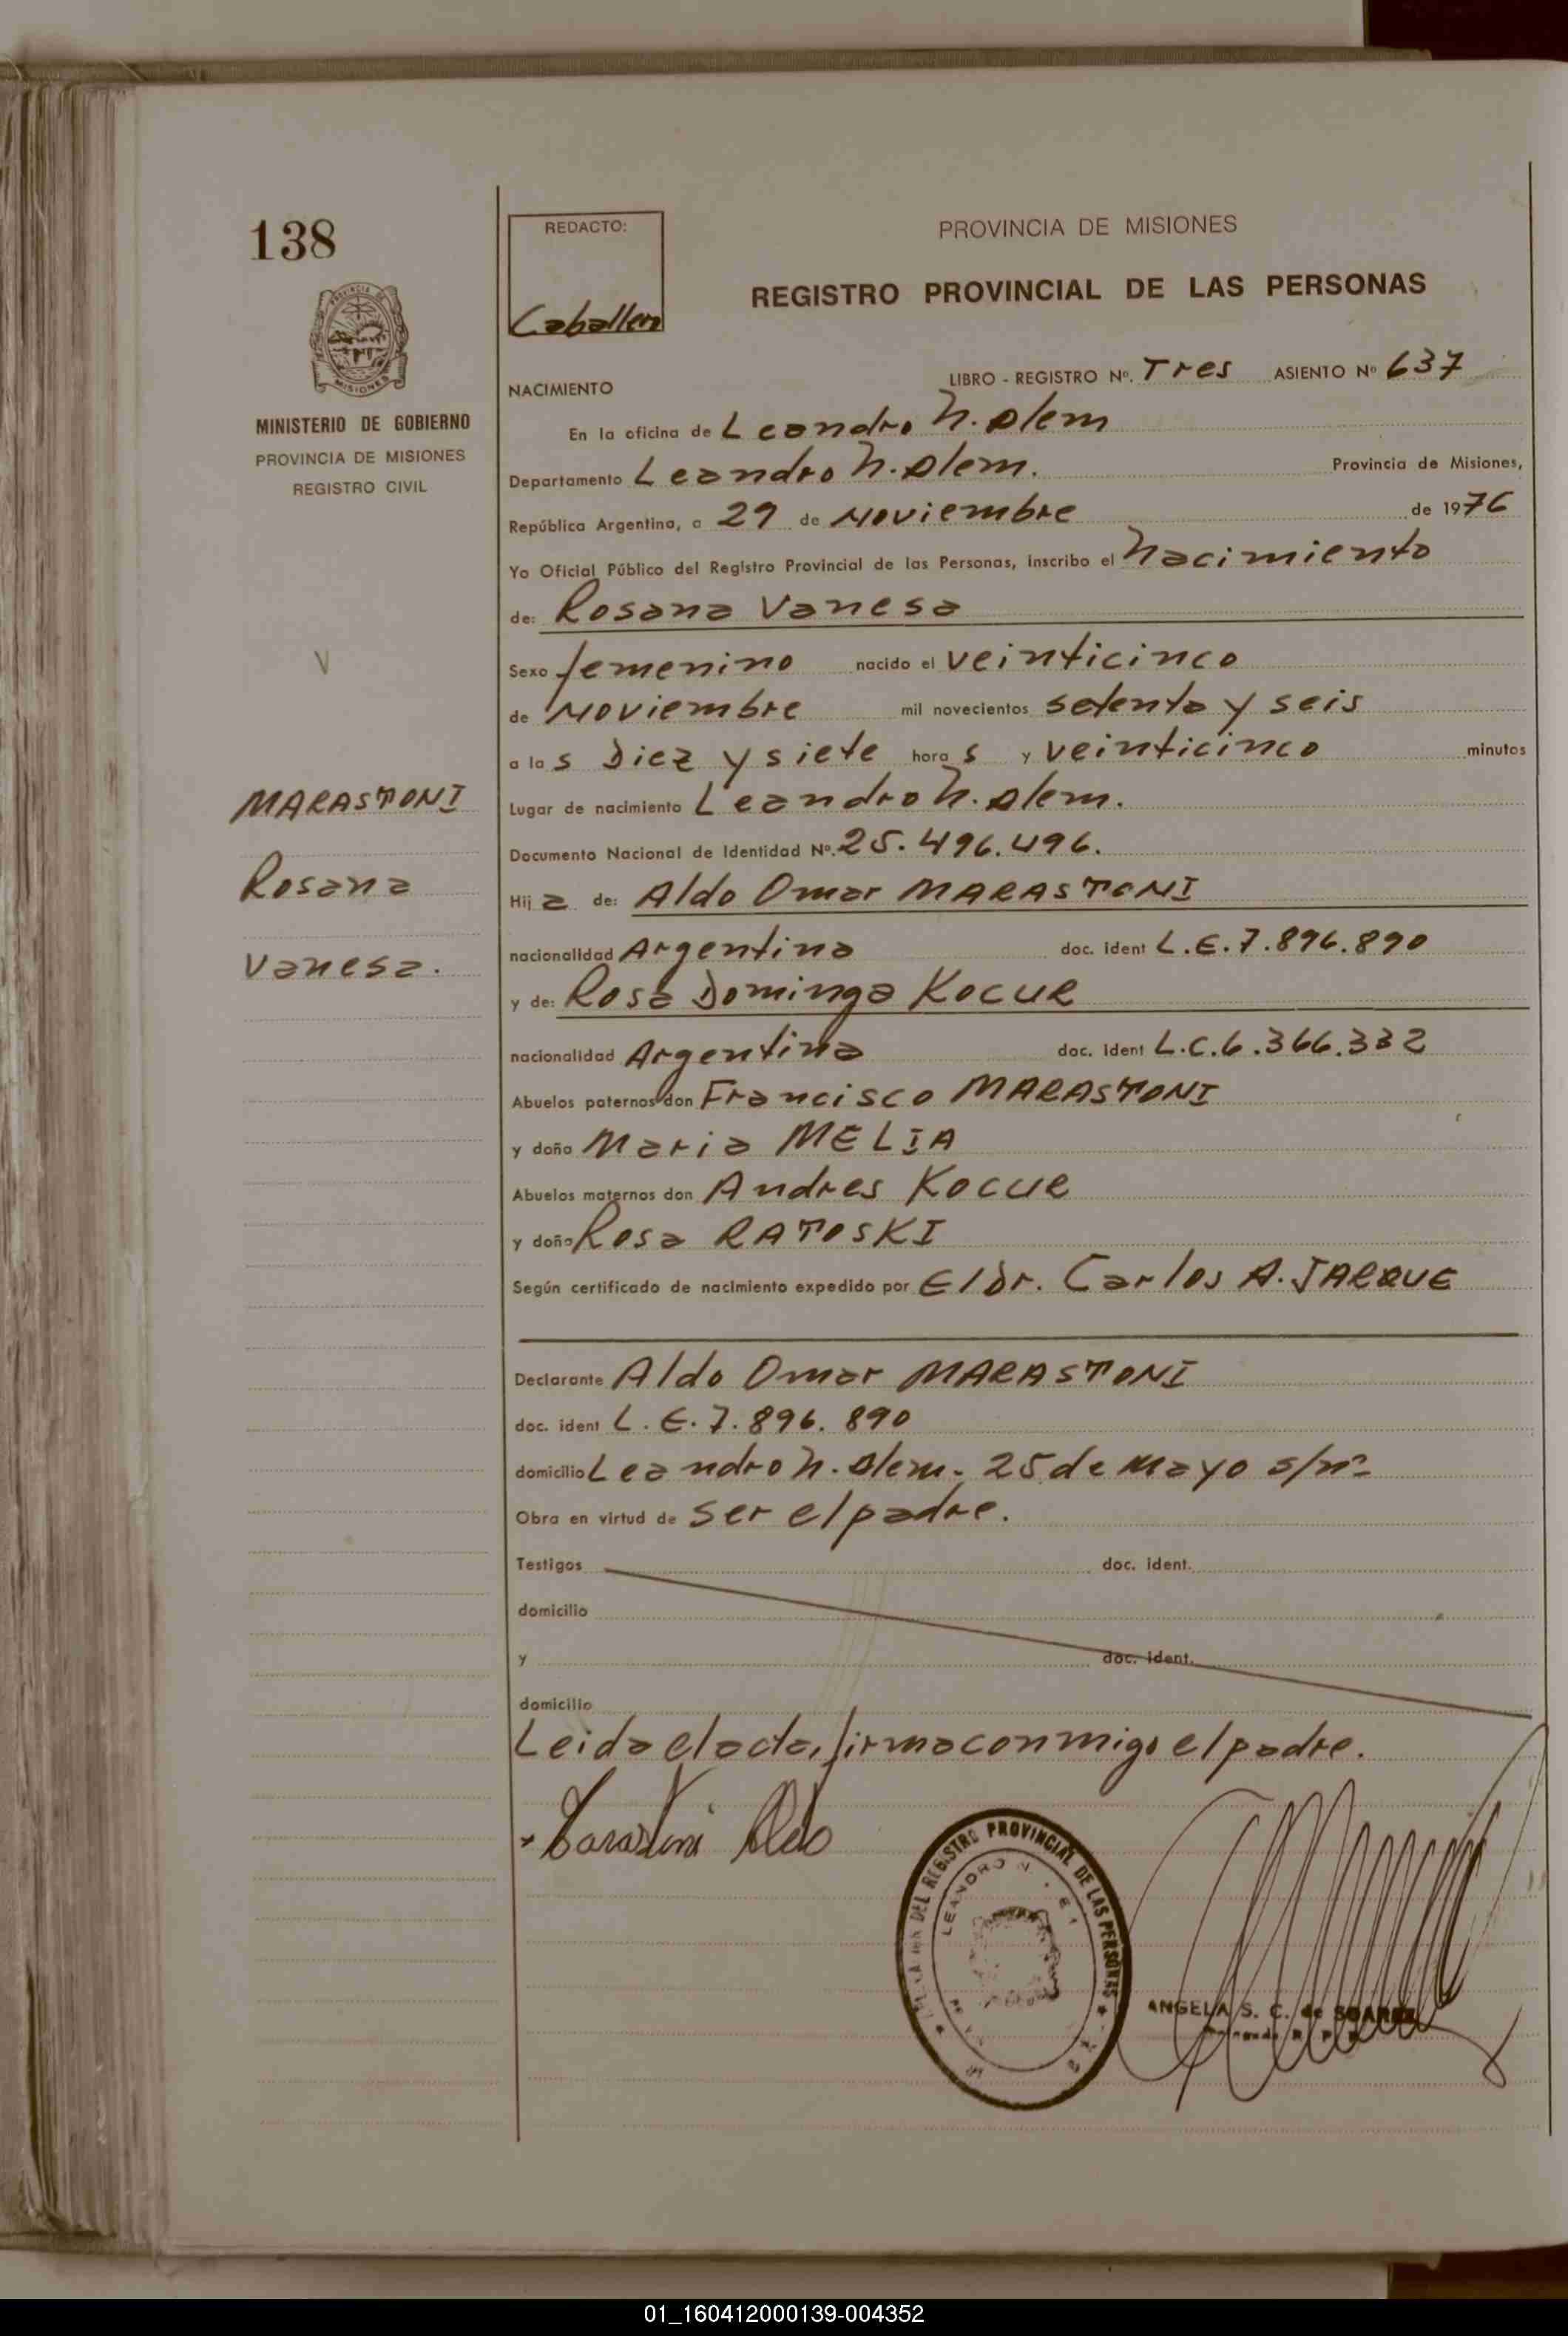 138
PROVINCIA DE
MISIONES
MINISTERIO DE GOBIERNO
PROVINCIA DE MISIONES
REGISTRO CIVIL
V
MARASTONI
Rosana
Vanesa.
REDACTO:
Caballero
PROVINCIA DE MISIONES
REGISTRO PROVINCIAL DE LAS PERSONAS
NACIMIENTO LIBRO - REGISTRO Nº. Tres ASIENTO Nº 637
En la oficina de Leandro N. Alem
Departamento Leandro N. Alem. Provincia de Misiones,
República Argentina, a 29 de Noviembre de 1976
Yo Oficial Público del Registro Provincial de las Personas, inscribo el Nacimiento
de: Rosana Vanesa
Sexo femenino nacido el veinticinco
de Noviembre mil novecientos setenta y seis
a las Diez y siete horas y veinticinco minutos
Lugar de nacimiento Leandro N. Alem.
Documento Nacional de Identidad Nº. 25.496.496.
Hija de: Aldo Omar MARASTONI
nacionalidad Argentina doc. ident L.E. 7.896.890
y de: Rosa Dominga KOCUR
nacionalidad Argentina doc. ident L.C. 6.366.332
Abuelos paternos don Francisco MARASTONI
y doña Maria MELIA
Abuelos maternos don Andres KOCUR
y doña Rosa RATOSKI
Según certificado de nacimiento expedido por El Dr. Carlos A. JARQUE
Declarante Aldo Omar MARASTONI
doc. ident L.E. 7.896.890
domicilio Leandro N. Alem. 25 de Mayo s/nº
Obra en virtud de ser el padre.
Testigos doc. ident.
domicilio
y doc. ident.
domicilio
Leida el acta, firma conmigo el padre.
Marastoni Aldo
DEL REGISTRO PROVINCIAL DE LAS PERSONAS
LEANDRO N.
ANGELA S. C. de SOAREZ
01_160412000139-004352